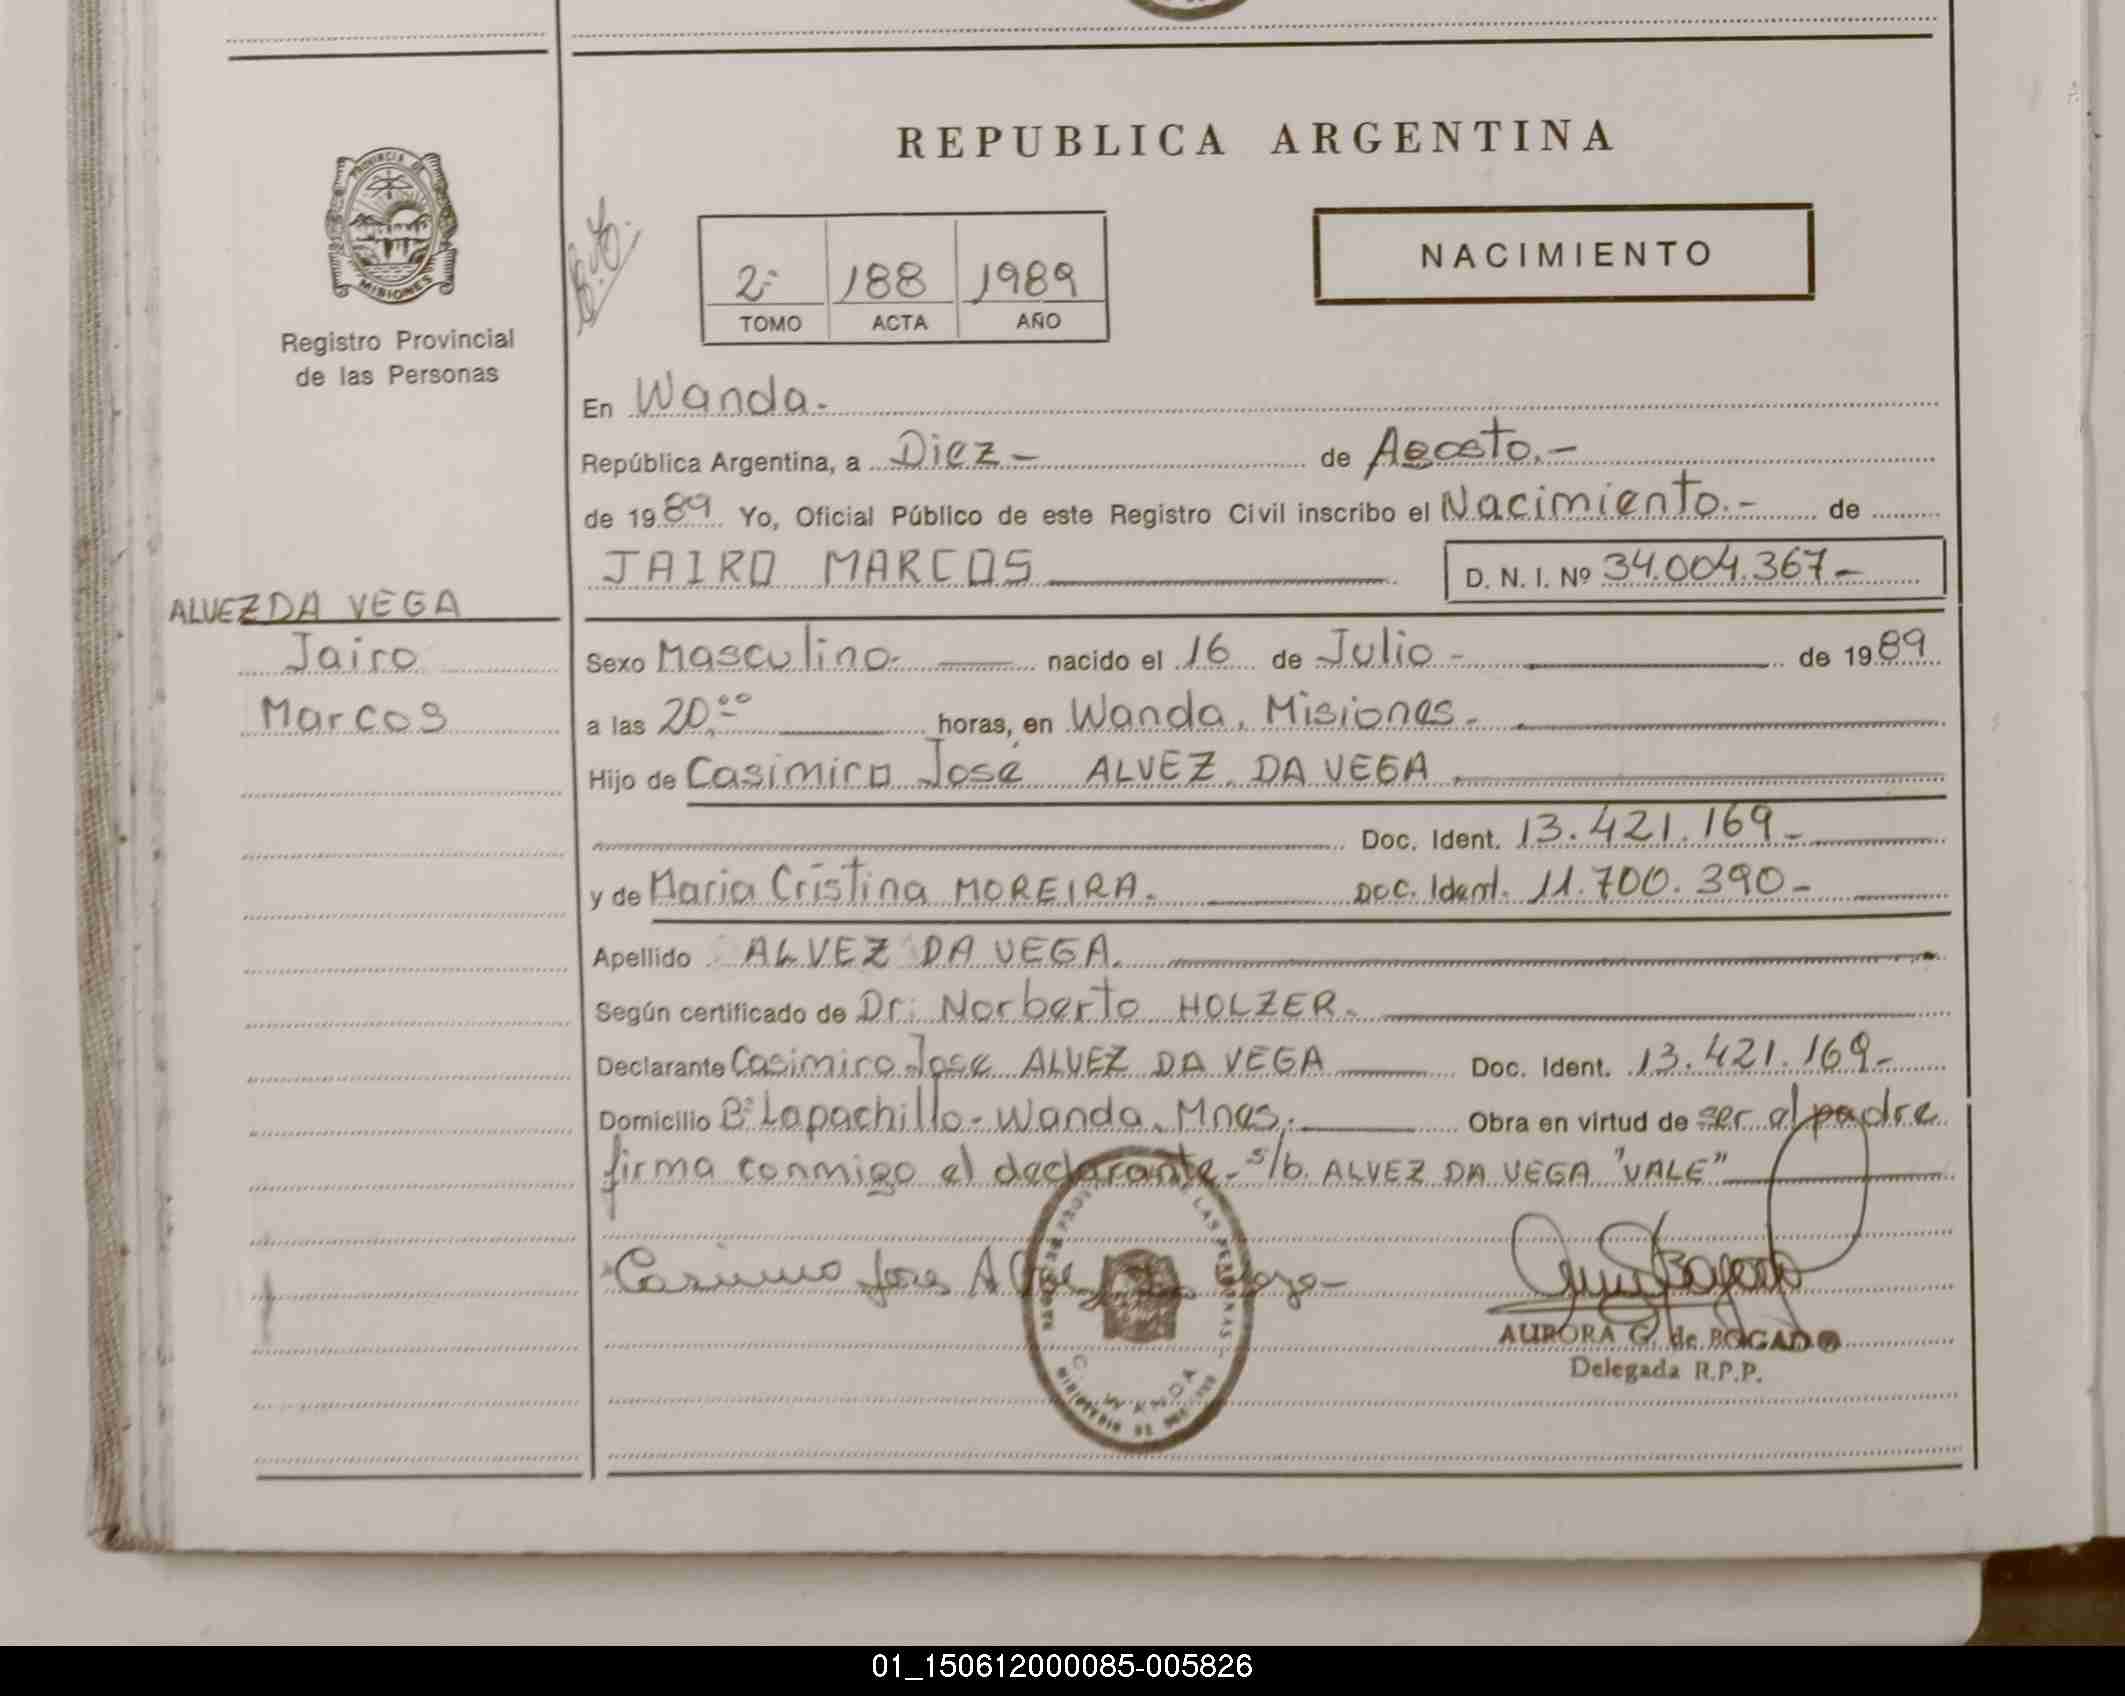 PROVINCIA DE
MISIONES
Registro Provincial
de las Personas
REPUBLICA ARGENTINA
NACIMIENTO
2º 188 1989
TOMO ACTA AÑO
En Wanda.-
República Argentina, a Diez - de Agosto.-
de 1989 Yo, Oficial Público de este Registro Civil inscribo el Nacimiento.- de
JAIRO MARCOS D. N. I. Nº 34.004.367-
ALVEZ DA VEGA
Jairo
Marcos
Sexo Masculino- nacido el 16 de Julio - de 1989
a las 20,00 horas, en Wanda, Misiones.-
Hijo de Casimiro José ALVEZ DA VEGA
Doc. Ident. 13.421.169-
y de Maria Cristina MOREIRA. Doc. Ident. 11.700.390-
Apellido ALVEZ DA VEGA.
Según certificado de Dr. Norberto HOLZER.
Declarante Casimiro José ALVEZ DA VEGA Doc. Ident. 13.421.169-
Domicilio Bº Lapachillo - Wanda, Mnes. Obra en virtud de ser el padre
firma conmigo el declarante.- s/b. ALVEZ DA VEGA "VALE"
Casimiro Jose
AURORA G. de BOGADO
Delegada R.P.P.
LAS PERSONAS
WANDA
01_150612000085-005826